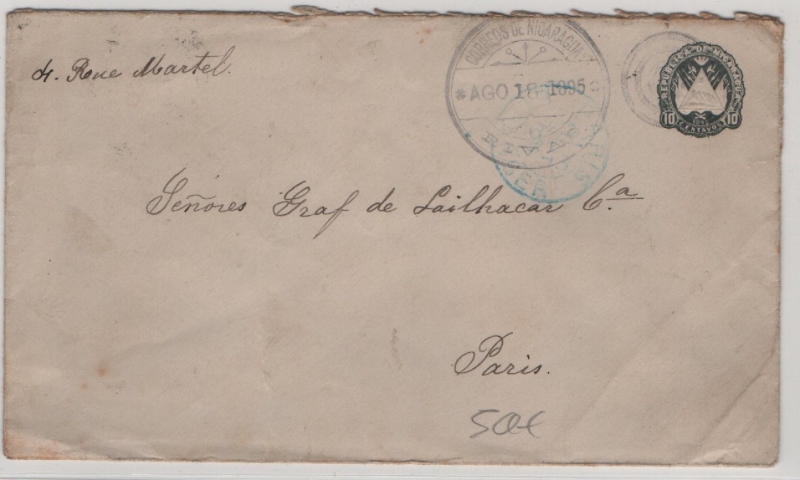 4. Rue Martel.
CORREOS DE NICARAGUA
* AGO 18 1895
RIVAS
PARIS
REPUBLICA DE NICARAGUA
10 10
CENTAVOS
Señores Graf de Lailhacar Cª
Paris.
50€